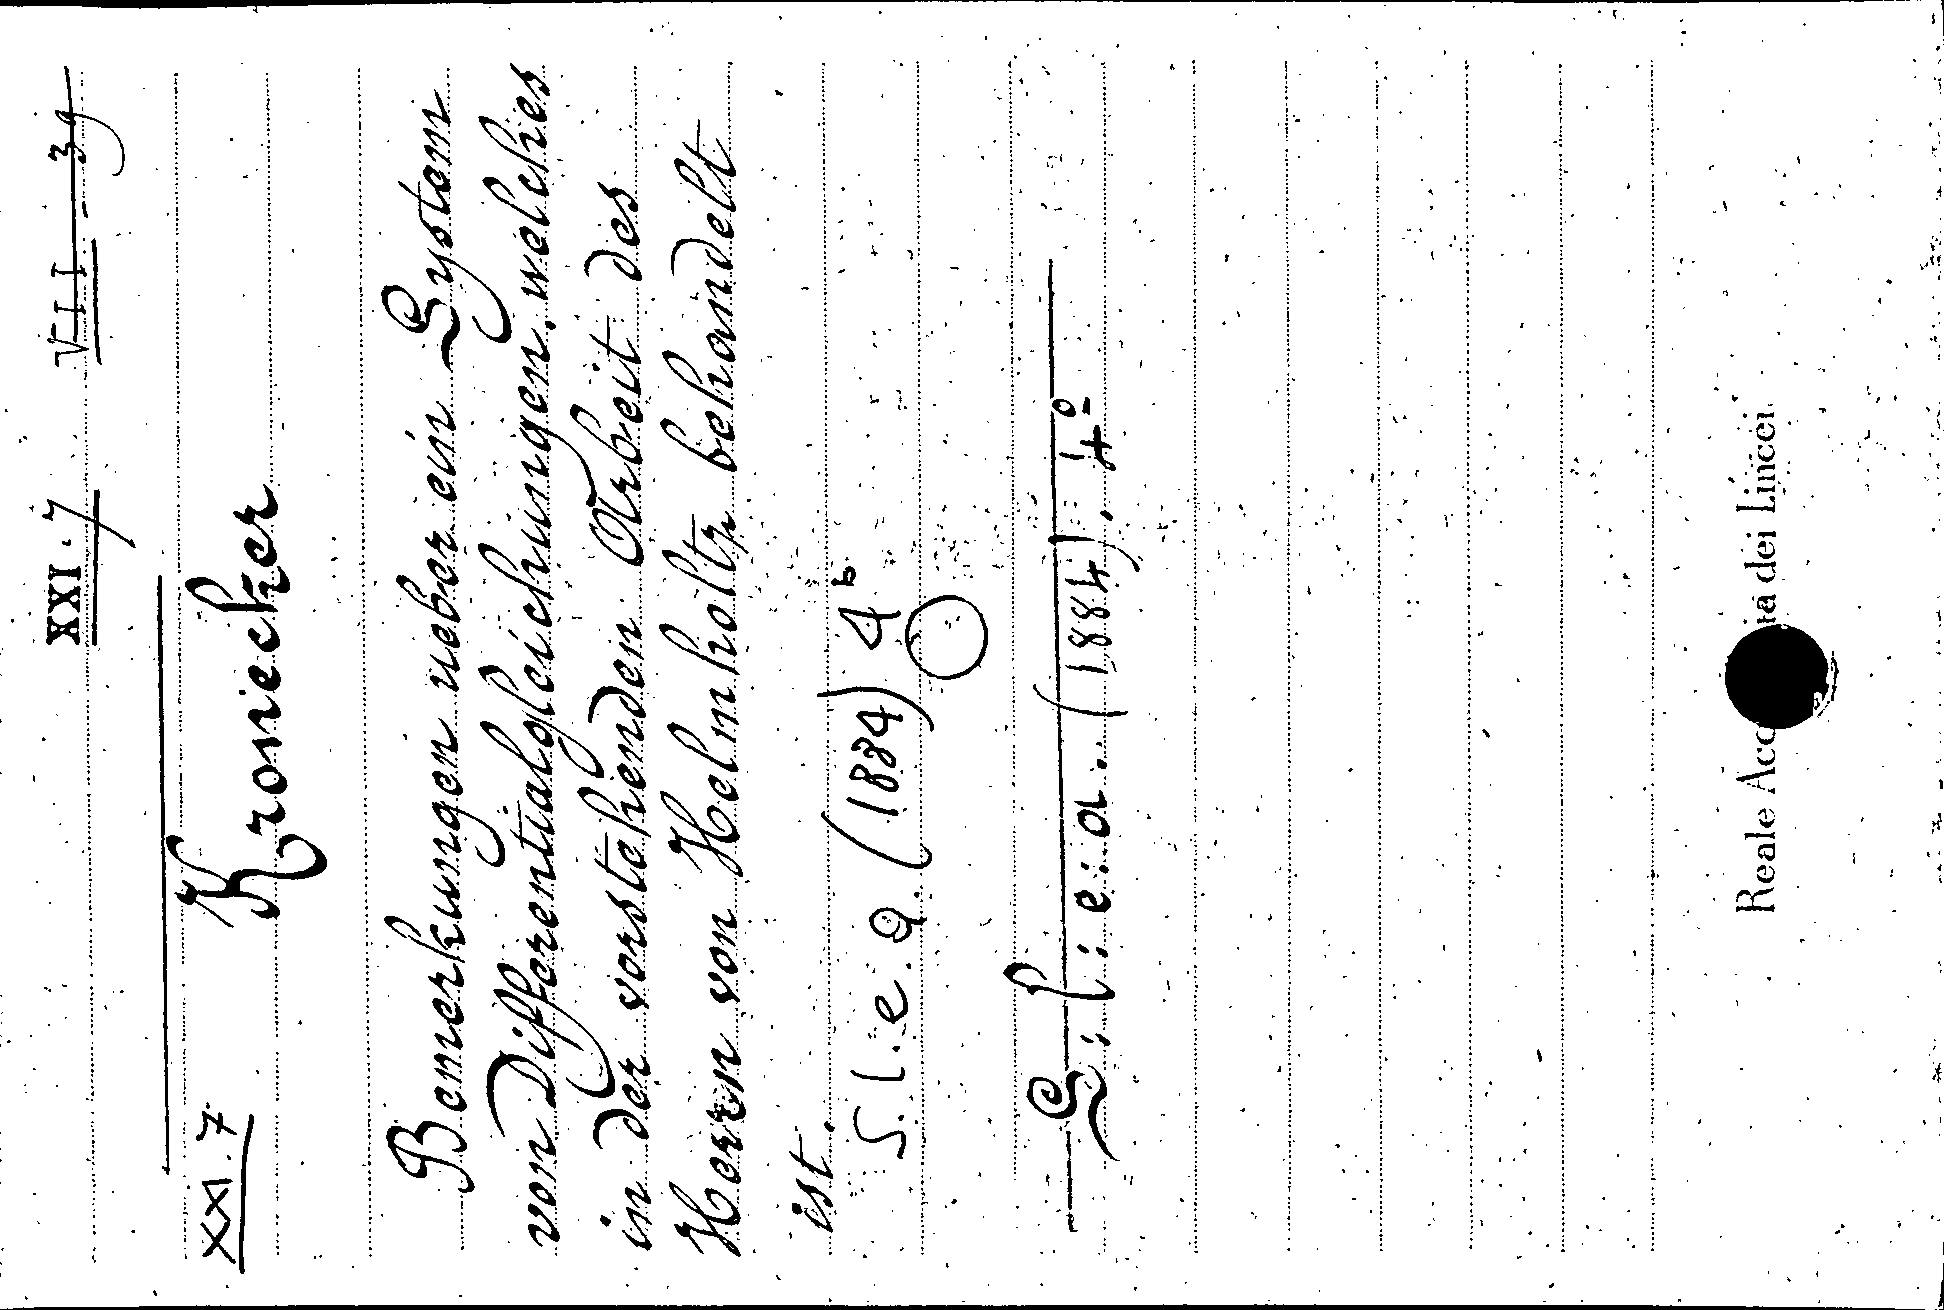 XXI. 7 VII - 39
XXI. 7
Kronecker
Bemerkungen ueber ein System
von Differentialgleichungen, welches
in der vorstehenden Arbeit des
Herrn von Helmholtz behandelt
ist.
S. l. e. a. (1884) 4°
S. l. e. a... (1884). 4°
Reale Acc ia dei Lincei